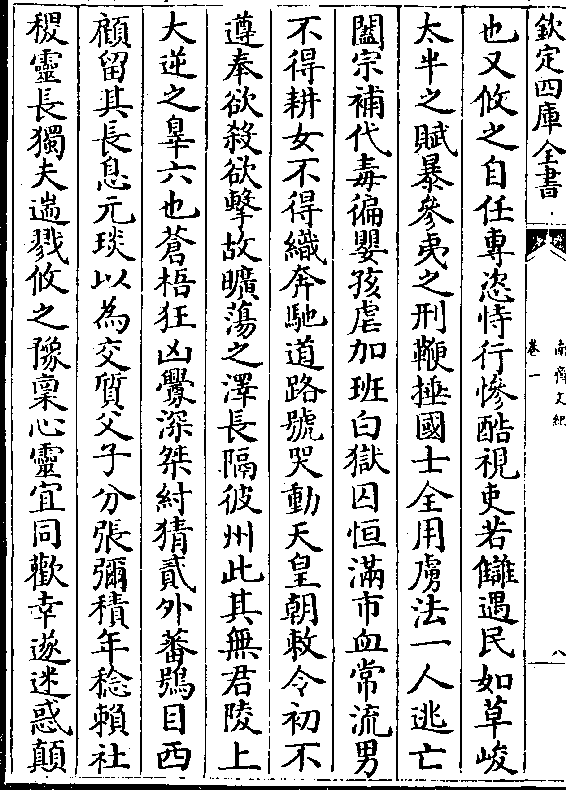 欽定四庫全書
南齊文紀
卷一
八
也又攸之自任專恣恃行慘酷視吏若讎遇民如草峻
太半之賦暴參夷之刑鞭捶國士全用虜法一人逃亡
闔宗補代毒徧嬰孩虐加班白獄囚恒滿市血常流男
不得耕女不得織奔馳道路號哭動天皇朝敕令初不
遵奉欲殺欲擊故曠蕩之澤長隔彼州此其無君陵上
大逆之辠六也蒼梧狂凶釁深桀紂猜貳外蕃鴞目西
顧留其長息元琰以為交質父子分張彌積年稔賴社
稷靈長獨夫遄戮攸之豫稟心靈宜同歡幸遂迷惑顛